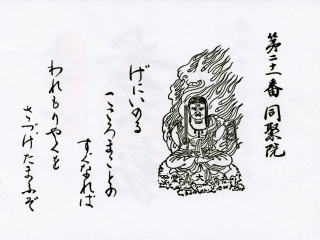 第二十一番 同聚院
げにいのる
こころまことの
すぐなれば
われもりやくを
さづけたまふぞ
大